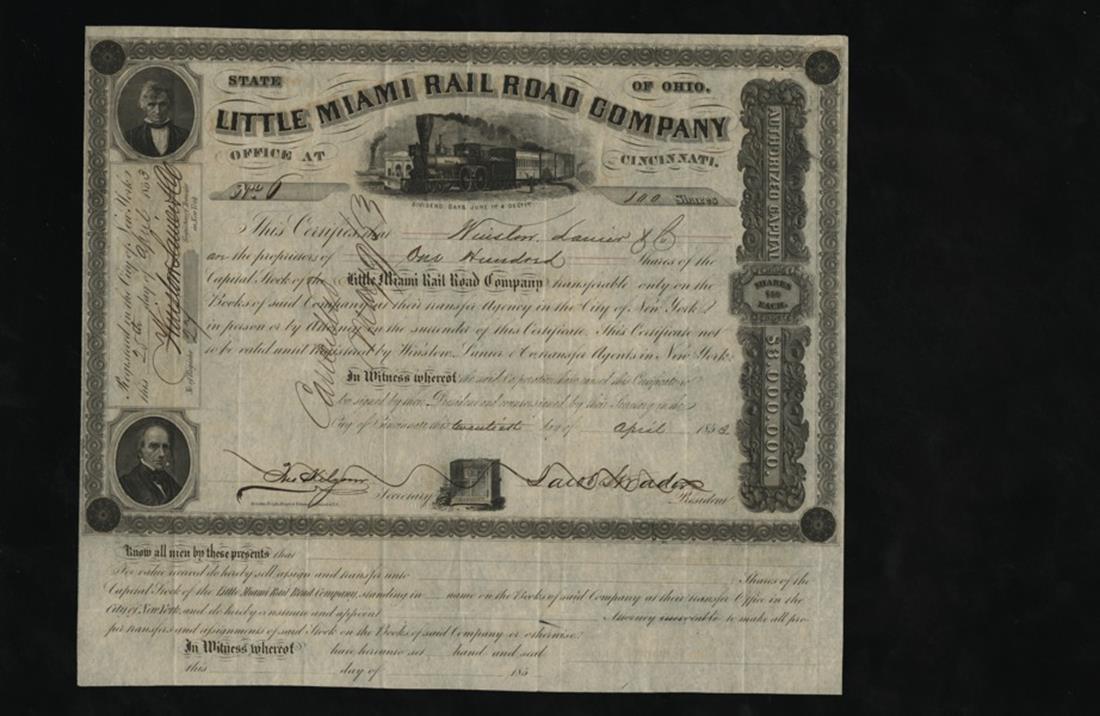 STATE OF OHIO.
LITTLE MIAMI RAIL ROAD COMPANY
OFFICE AT CINCINNATI.
DIVIDEND DAYS JUNE 1st & DEC 1st
No. 6
100 Shares
This Certifies that Winslow, Lanier & Co
are the proprietors of One Hundred Shares of the
Capital Stock of the Little Miami Rail Road Company transferable only on the
Books of said Company at their transfer Agency in the City of New York
in person or by Attorney on the surrender of this Certificate. This Certificate not
to be valid until registered by Winslow, Lanier & Co transfer Agents in New York.
In Witness whereof the said Corporation have caused this Certificate to
be signed by their President and countersigned by their Secretary in the
City of Cincinnati this twentieth day of April 1853
Secretary
Jacob Strader
President
Cancelled
Registered in the City of New York
this 25th day of April 1853
Winslow Lanier & Co
27
AUTHORIZED CAPITAL
SHARES
$50
EACH.
$3,000,000.
Know all men by these presents that
For value received do hereby sell assign and transfer unto Shares of the
Capital Stock of the Little Miami Rail Road Company, standing in name on the Books of said Company at their transfer Office in the
City of New York, and do hereby constitute and appoint Attorney irrevocable to make all pro-
per transfers and assignments of said Stock on the Books of said Company or otherwise.
In Witness whereof have hereunto set hand and seal
this day of 185